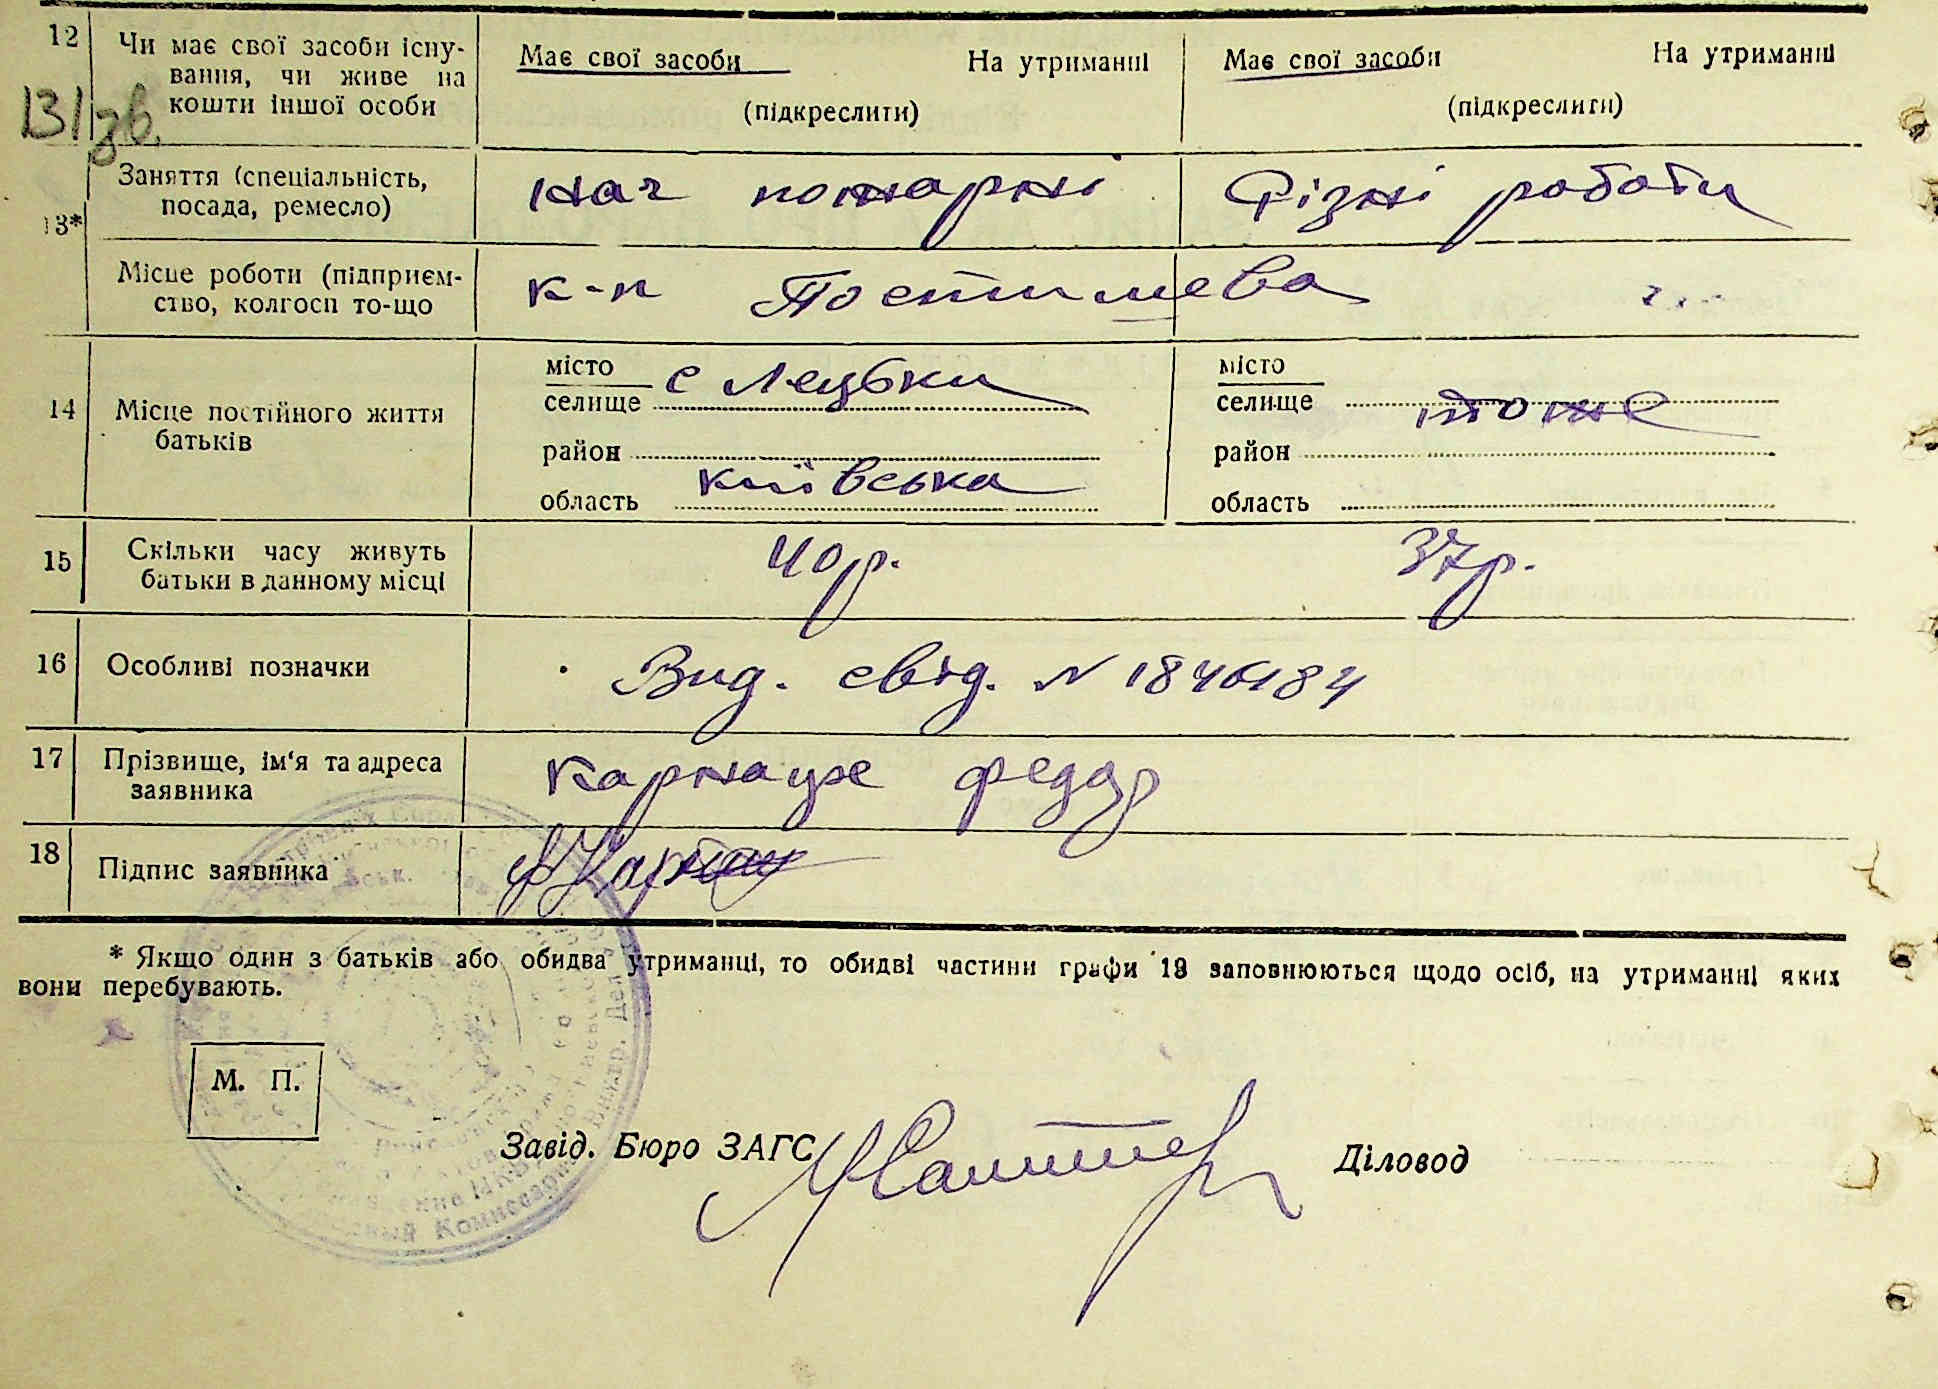 12 Чи має свої засоби існу-
вання, чи живе на
кошти іншої особи
Має свої засоби На утриманні
(підкреслити)
Має свої засоби На утриманні
(підкреслити)
131 зв.
13* Заняття (спеціальність,
посада, ремесло)
нач пожарні
Різні роботи
Місце роботи (підприєм-
ство, колгосп то-що
к-п Постишева
14 Місце постійного життя
батьків
місто
селище с Лецьки
район
область київська
місто
селище тоже
район
область
15 Скільки часу живуть
батьки в данному місці
40р.
37р.
16 Особливі позначки
Вид. свід. N 1846184
17 Прізвище, ім'я та адреса
заявника
Карнаух Федор
18 Підпис заявника
* Якщо один з батьків або обидва утриманці, то обидві частини графи 13 заповнюються щодо осіб, на утриманні яких
вони перебувають.
М. П.
Завід. Бюро ЗАГС
Діловод